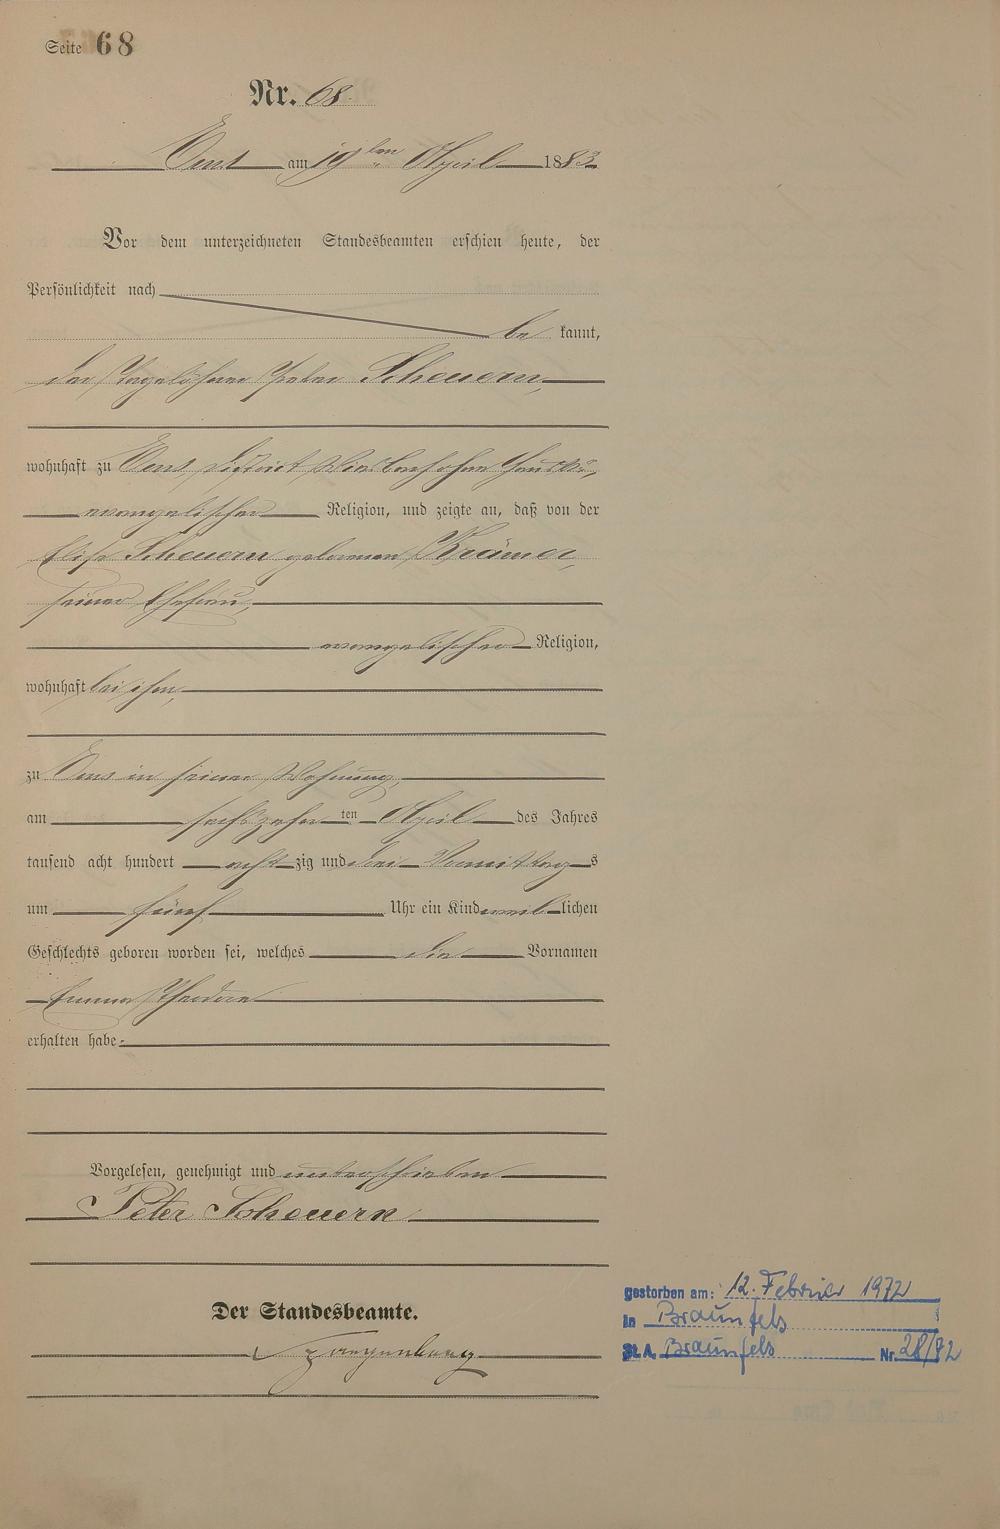 Seite 68
Nr. 68.
Ems am 19ten April 1883
Vor dem unterzeichneten Standesbeamten erschien heute, der
Persönlichkeit nach
be kannt,
der Tagelöhner Peter Scheuern,
wohnhaft zu Ems, District
evangelischer Religion, und zeigte an, daß von der
Elise Scheuern geborenen Krämer,
seiner Ehefrau,
evangelischer Religion,
wohnhaft bei ihm,
zu Ems in seiner Wohnung,
am sechszehn ten April des Jahres
tausend acht hundert acht zig und drei Vormittags
um fünf Uhr ein Kind weib lichen
Geschlechts geboren worden sei, welches die Vornamen
Emma
erhalten habe.
Vorgelesen, genehmigt und unterschrieben
Peter Scheuern
Der Standesbeamte.
gestorben am: 12. Februar 1972
in Braunfels
St. A. Braunfels Nr. 28/72